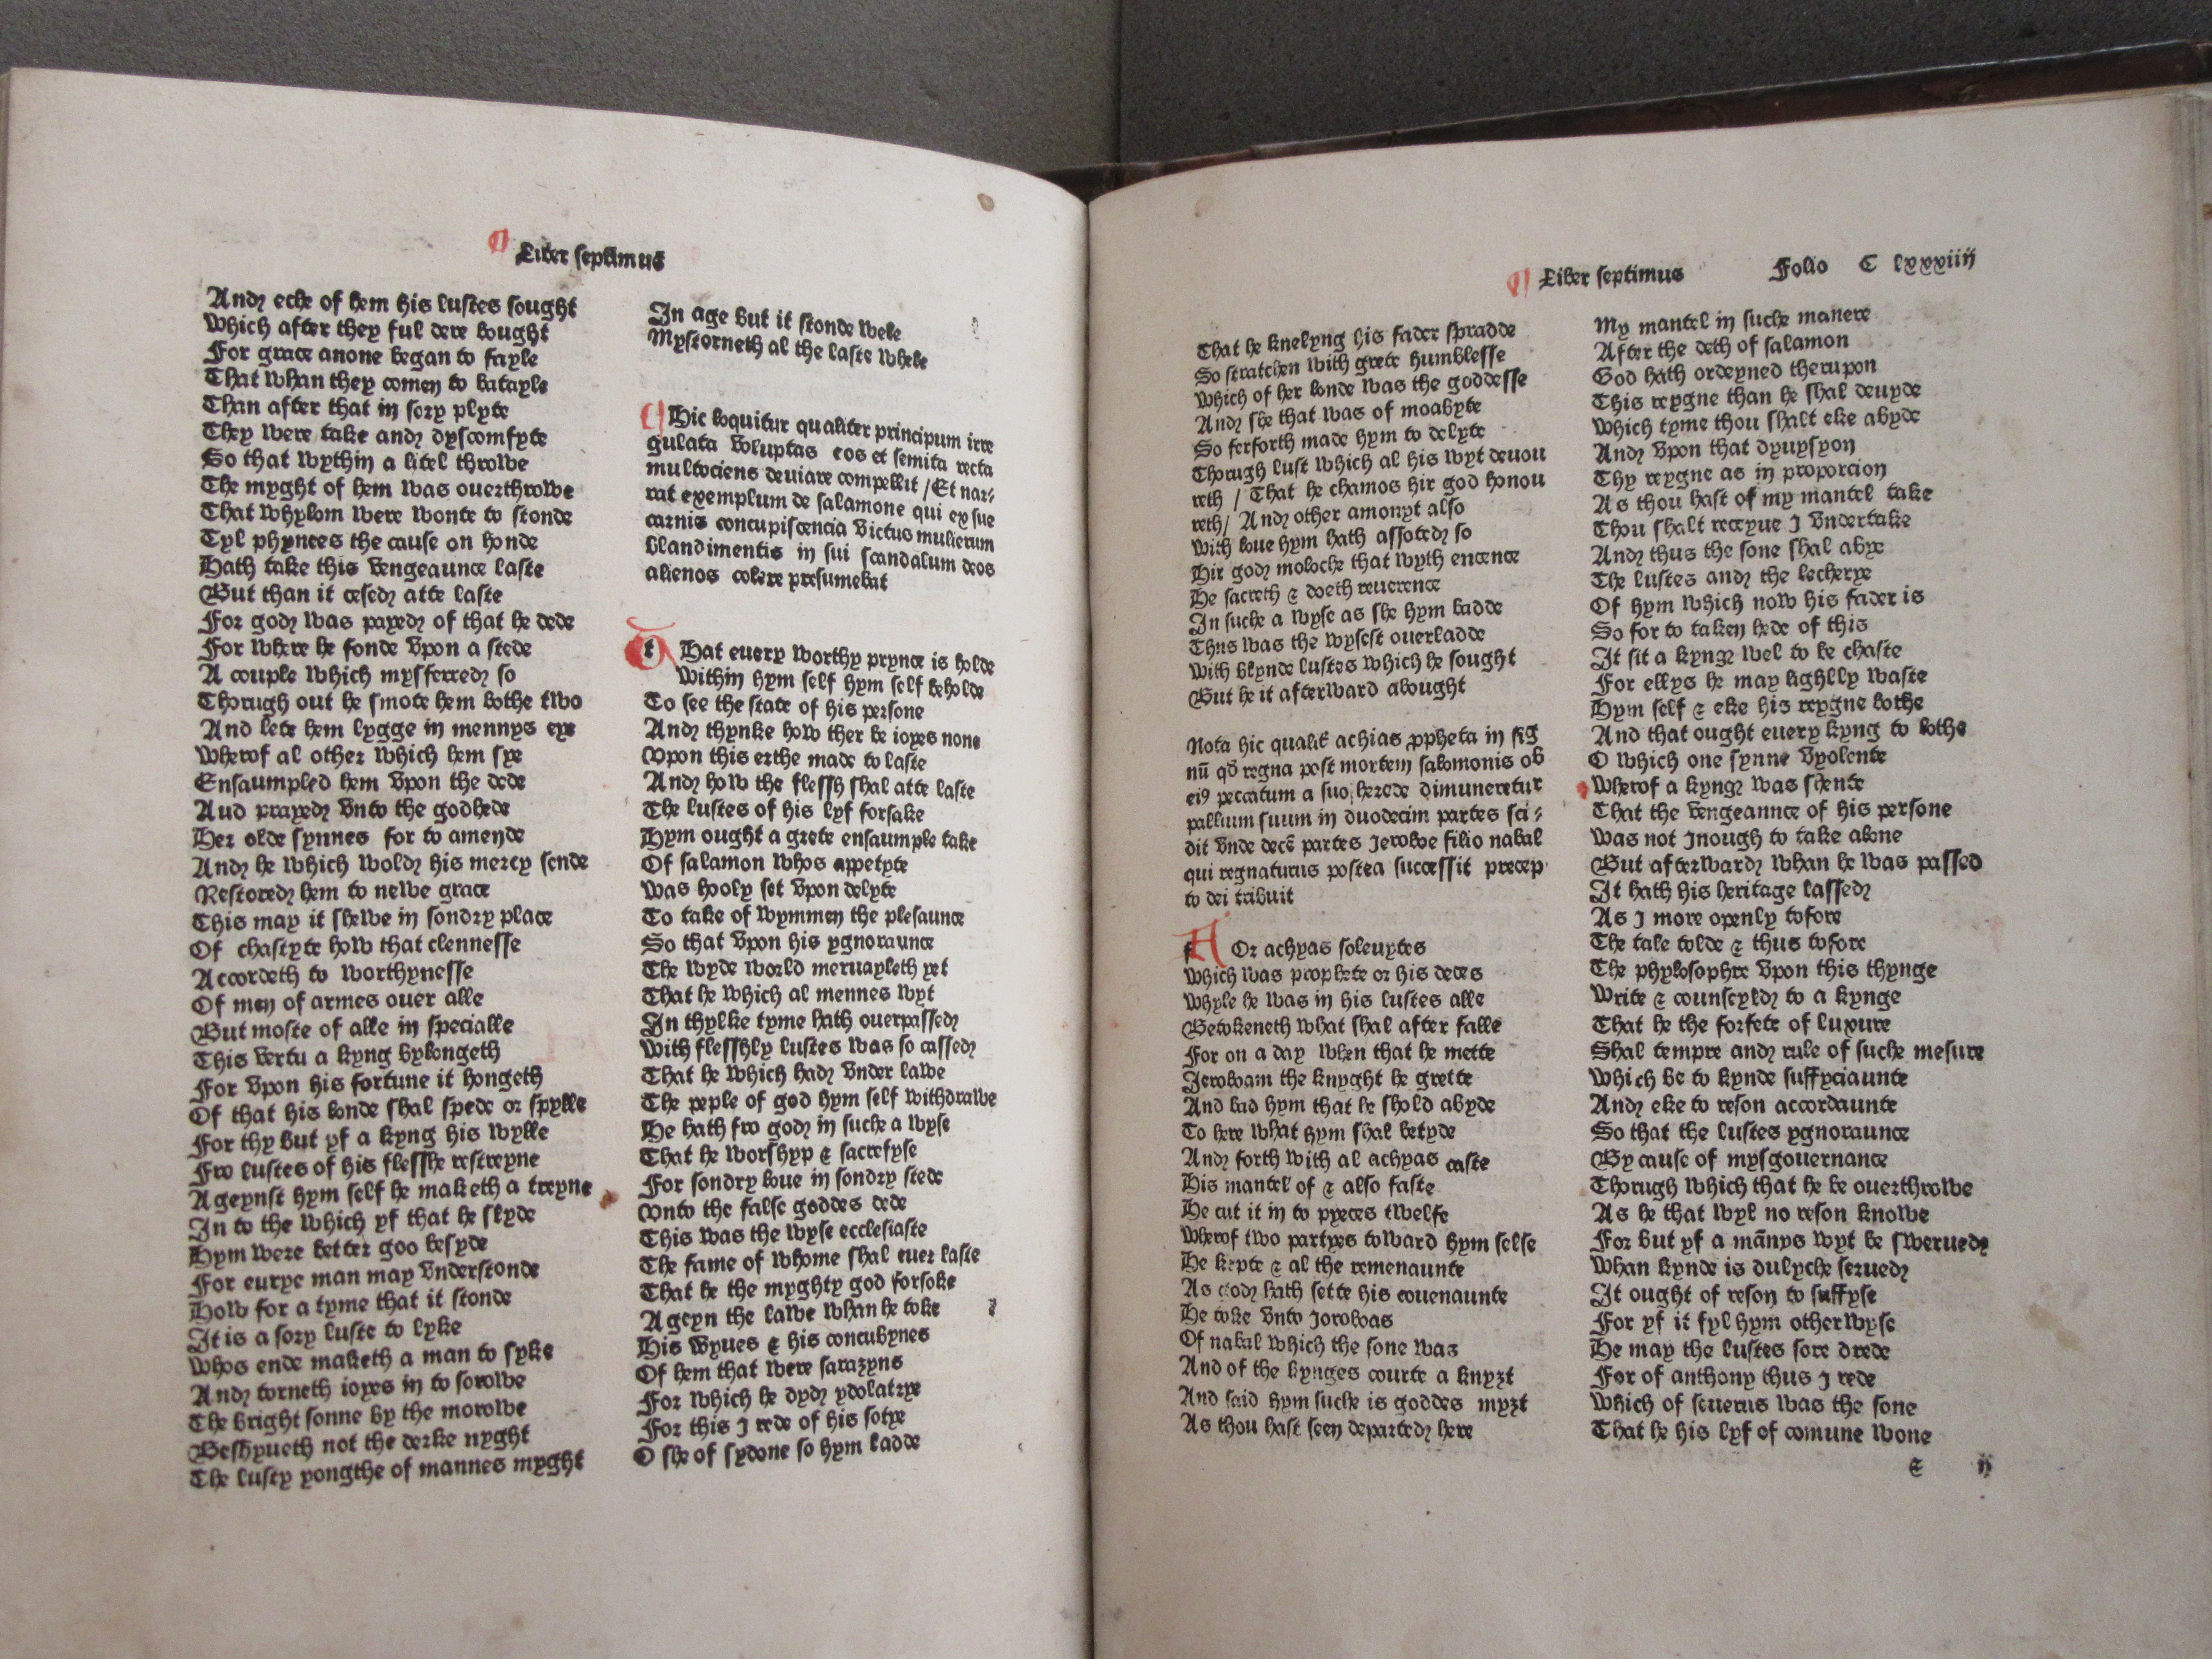 Liber septimus
And eche of hem his lustes sought
Which after they ful dere bought
For grace anone began to fayle
That whan they comen to batayle
Than after that in sory plyte
They were take and dyscomfyte
So that wythin a litel throwe
The myght of hem was ouerthrowe
That whylom were wonte to stonde
Tyl phynees the cause on honde
Hath take this vengeaunce laste
But than it cesed atte laste
For god was payed of that he dede
For where he fonde vpon a stede
A couple which mysferred so
Thorugh out he smote hem bothe two
And lete hem lygge in mennys eye
Wherof al other which hem sye
Ensaumpled hem vpon the dede
Aud prayed vnto the godhede
Her olde synnes for to amende
And he which wold his mercy sende
Restored hem to newe grace
This may it shewe in sondry place
Of chastyte how that clennesse
Accordeth to worthynesse
Of men of armes ouer alle
But moste of alle in specialle
This vertu a kyng bylongeth
For vpon his fortune it hongeth
Of that his londe shal spede or spylle
For thy but yf a kyng his wylle
Fro lustes of his flesshe restreyne
Ageynst hym self he maketh a treyne
In to the which yf that he slyde
Hym were better goo besyde
For eurye man may vnderstonde
How for a tyme that it stonde
It is a sory luste to lyke
Whos ende maketh a man to syke
And torneth ioyes in to sorowe
The bright sonne by the morowe
Beshyueth not the derke nyght
The lusty yongthe of mannes myght
In age but it stonde wele
Mystorneth al the laste whele
Hic loquitur qualiter principum irre
gulata voluptas eos et semita recta
multociens deuiare compellit / Et nar-
rat exemplum de salamone qui ex sue
carnis concupiscencia victus mulierum
blandimentis in sui scandalum deos
alienos colere presumebat
tHat euery worthy prynce is holde
Within hym self hym self beholde
To see the state of his persone
And thynke how ther be ioyes none
Vpon this erthe made to laste
And how the flessh shal atte laste
The lustes of his lyf forsake
Hym ought a grete ensaumple take
Of salamon whos appetyte
Was hooly set vpon delyte
To take of wymmen the plesaunce
So that vpon his ygnoraunce
The wyde world meruayleth yet
That he which al mennes wyt
In thylke tyme hath ouerpassed
With flesshly lustes was so cassed
That he which had vnder lawe
The peple of god hym self withdrawe
He hath fro god in suche a wyse
That he worshyp & sacrefyse
For sondry loue in sondry stede
Vnto the false goddes dede
This was the wyse ecclesiaste
The fame of whome shal euer laste
That he the myghty god forsoke
Ageyn the lawe whan he toke
His wyues & his concubynes
Of hem that were sarazyns
For which he dyd ydolatrye
For this I rede of his sotye
O she of sydone so hym ladde
Liber septimus Folio C lxxxiiij
That he knelyng his fader spradde
So stratchen with grete humblesse
Which of her londe was the goddesse
And she that was of moabyte
So ferforth made hym to delyte
Thorugh lust which al his wyt deuou
reth / That he chamos hir god honou
reth / And other amonyt also
With loue hym hath assoted so
Hir god moloche that wyth encence
He sacreth & doeth reuerence
In suche a wyse as she hym badde
Thus was the wysest ouerladde
With blynde lustes which he sought
But he it afterward abought
Nota hic qualit̄ achias ꝓpheta in sig
nū qd̄ regna post mortem salomonis ob
eiꝰ peccatum a suo herede dimuneretur
pallium suum in duodecim partes sci-
dit vnde decē partes Jeroboe filio nabal
qui regnaturus postea successit precep
to dei tribuit
fOr achyas soleuytes
Which was prophete or his deces
Whyle he was in his lustes alle
Betokeneth what shal after falle
For on a day when that he mette
Jeroboam the knyght he grette
And bad hym that he shold abyde
To here what hym shal betyde
And forth with al achyas caste
His mantel of & also faste
He cut it in to pyeces twelfe
Wherof two partyes toward hym selfe
He kepte & al the remenaunte
As god hath sette his couenaunte
He toke vnto Joroboas
Of nabal which the sone was
And of the kynges courte a knyȝt
And said hym suche is goddes myȝt
As thou hast seen departed here
My mantel in suche manere
After the deth of salamon
God hath ordeyned therupon
This reygne than he shal deuyde
Which tyme thou shalt eke abyde
And vpon that dyuysyon
Thy reygne as in proporcion
As thou hast of my mantel take
Thou shalt receyue I vndertake
And thus the sone shal abye
The lustes and the lecherye
Of hym which now his fader is
So for to taken hede of this
It sit a kyng wel to be chaste
For ellys he may lighlly waste
Hym self & eke his reygne bothe
And that ought euery kyng to lothe
O which one synne vyolente
Wherof a kyng was shente
That the vengeannce of his persone
Was not Inough to take alone
But afterward whan he was passed
It hath his heritage lassed
As I more openly tofore
The tale tolde & thus tofore
The phylosophre vpon this thynge
Write & counseyld to a kynge
That he the forfete of luxure
Shal tempre and rule of suche mesure
Which be to kynde suffyciaunte
And eke to reson accordaunte
So that the lustes ygnoraunce
By cause of mysgouernance
Thorugh which that he be ouerthrowe
As he that wyl no reson knowe
For but yf a mānys wyt be swerued
Whan kynde is dulyche serued
It ought of reson to suffyse
For yf it fyl hym otherwyse
He may the lustes sore drede
For of anthony thus I rede
Which of seuerus was the sone
That he his lyf of comune wone
& ij